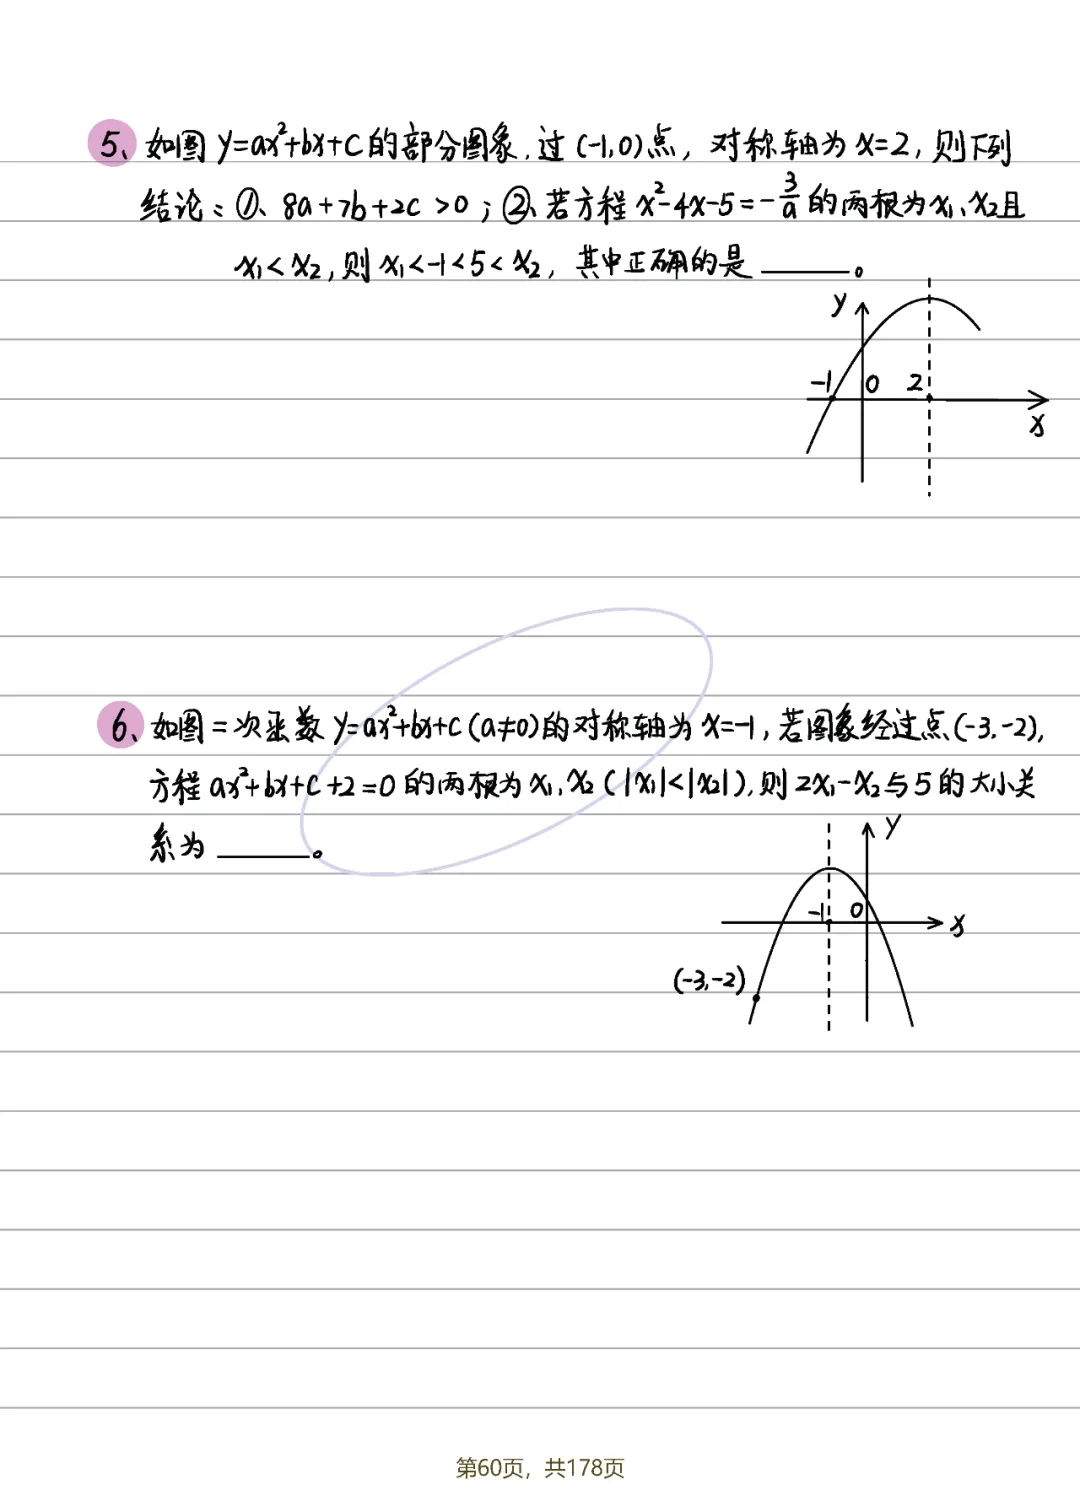 5、如图 y=ax²+bx+c的部分图象,过(-1,0)点,对称轴为x=2,则下列
结论:①、8a+7b+2c>0;②、若方程x²-4x-5=-3/a的两根为x₁、x₂且
x₁<x₂,则x₁<-1<5<x₂,其中正确的是______。
y
-1 0 2
x
6、如图二次函数 y=ax²+bx+c(a≠0)的对称轴为x=-1,若图象经过点(-3,-2),
方程ax²+bx+c+2=0的两根为x₁,x₂(|x₁|<|x₂|),则2x₁-x₂与5的大小关
系为______。
y
-1 0
x
(-3,-2)
第60页,共178页